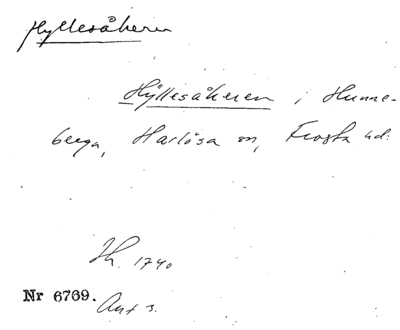 Hyllesåkern
Hÿllesåkeren i Hunne-
berga, Harlösa sn, Frosta hd:
Jh. 1740
Nr 6769.
Ant s.